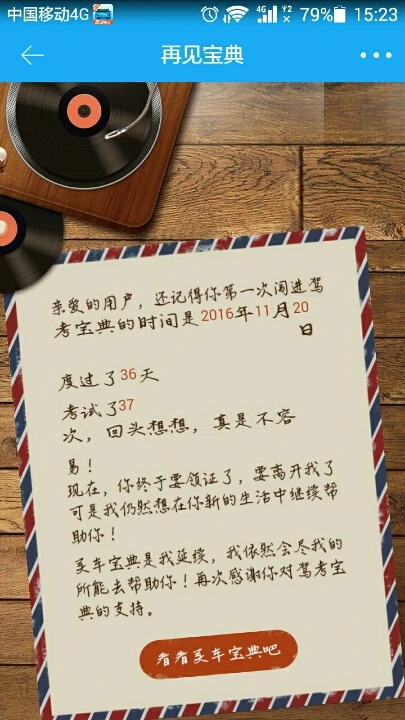 中国移动4G
4G
79%
15:23
再见宝典
亲爱的用户，还记得你第一次闯进驾
考宝典的时间是2016年11月20
日
度过了36天
考试了37
次，回头想想，真是不容
易！
现在，你终于要领证了，要离开我了
可是我仍然想在你新的生活中继续帮
助你！
买车宝典是我延续，我依然会尽我的
所能去帮助你！再次感谢你对驾考宝
典的支持。
看看买车宝典吧